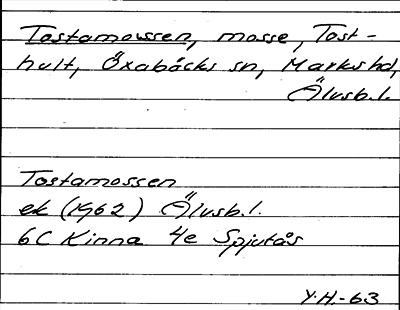 Tostamossen, mosse, Tost-
hult, Öxabäcks sn, Marks hd,
Älvsb. l.
Tostamossen
ek (1962) Älvsb. l.
6C Kinna 4e Spjutås
Y.H.-63